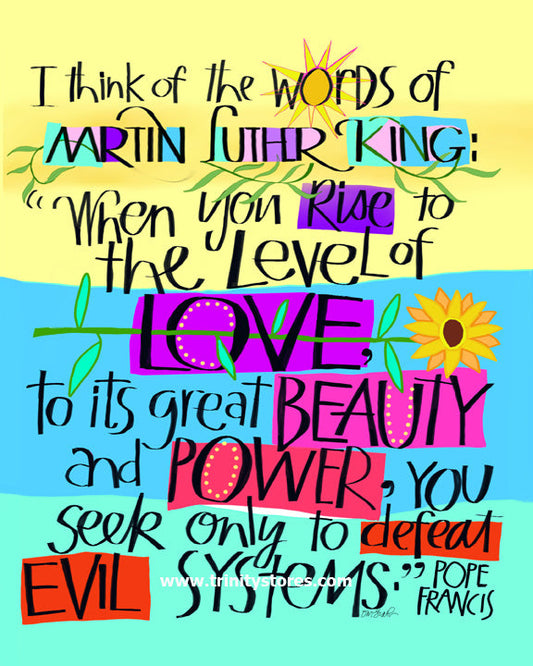 I think of the WORDS of
MARTIN LUTHER KING:
"When you Rise to
the LEVEL of
LOVE,
to its great BEAUTY
and POWER, YOU
seek only to defeat
EVIL SYSTEMS:"
www.trinitystores.com
POPE
FRANCIS